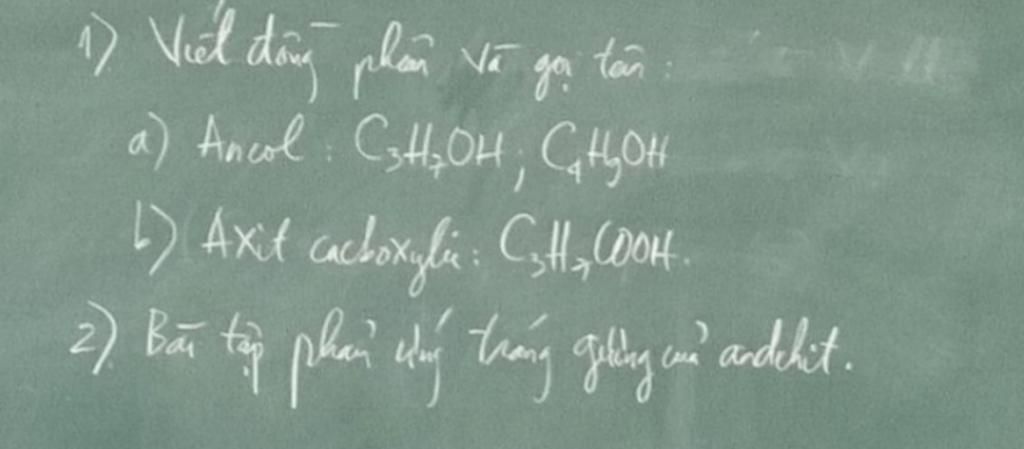 1) Viết đồng phân và gọi tên :
a) Ancol : C₃H₇OH ; C₄H₉OH
b) Axit cacboxylic : C₃H₇COOH.
2) Bài tập phản ứng tráng gương của andehit.